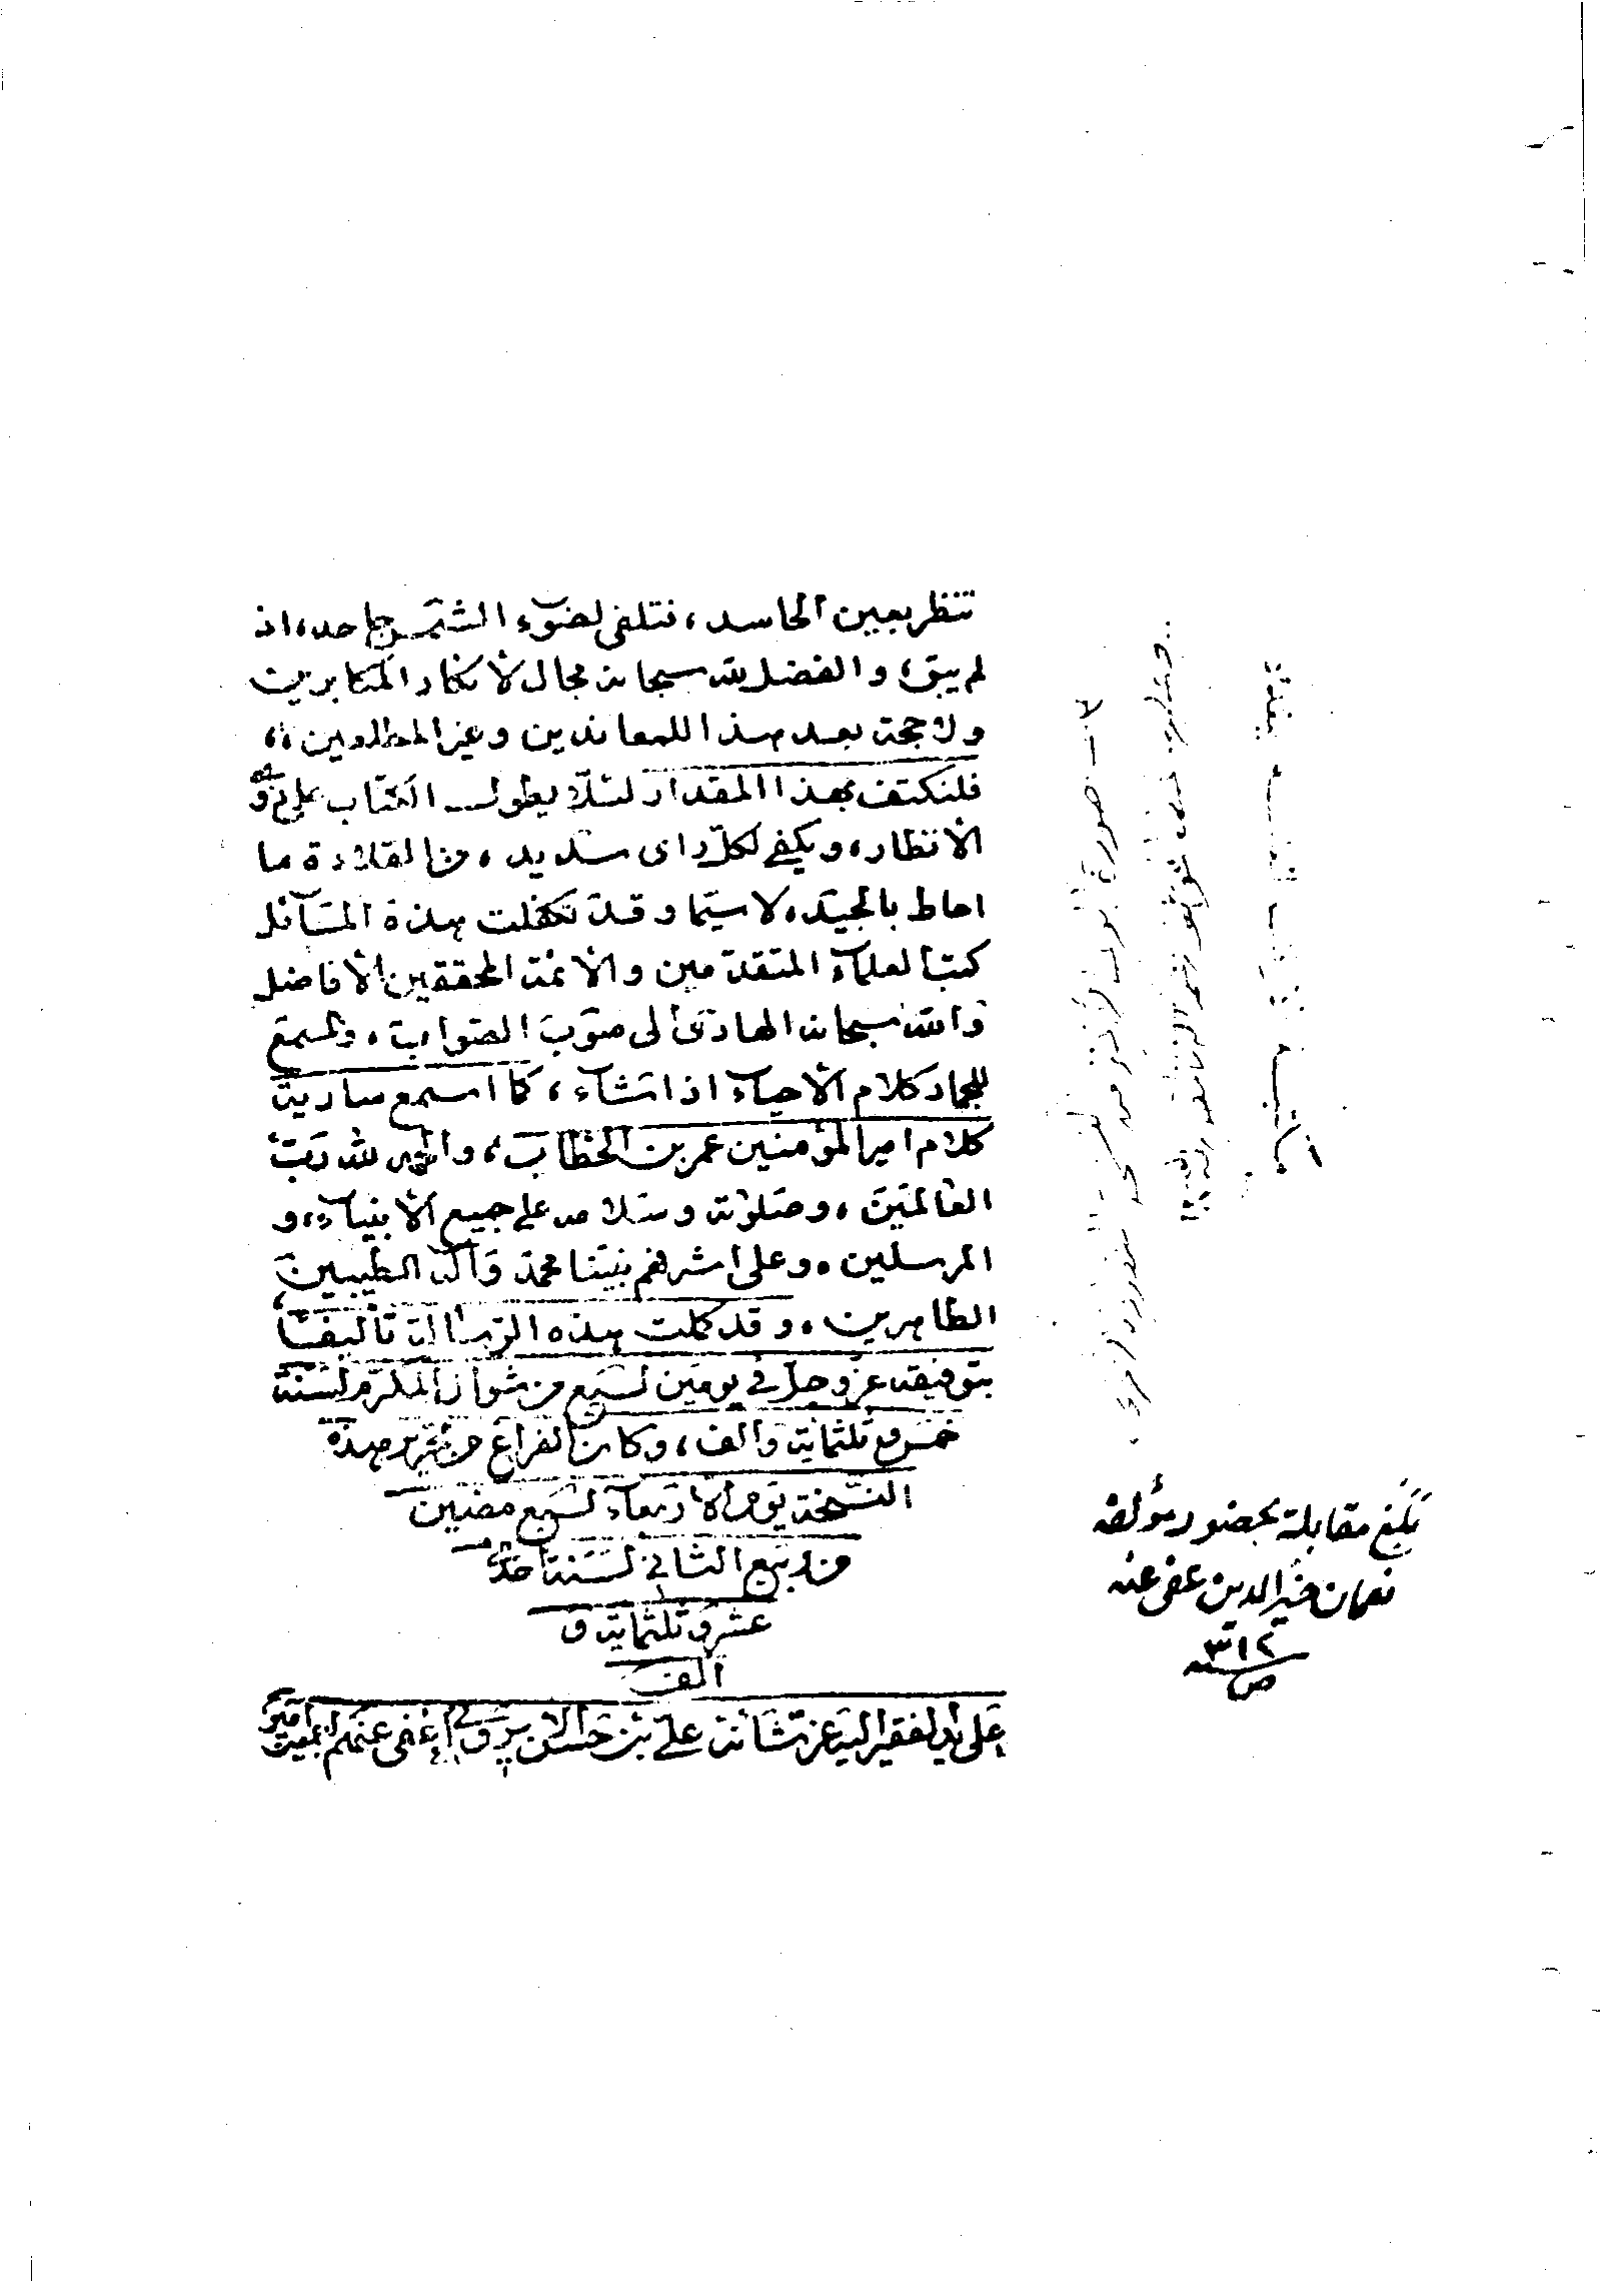 تنظر بعين الحاسد، فتلفى لضوء الشمس جاحد، اذ
لم يبق، والفضل لله سبحانه مجال لأنكار المكابرين
ولا حجة بعد هذا للمعاندين وغير المطلعين،
فلنكتف بهذا المقدار لئلا يطول الكتاب على ذوى
الانظار، ويكفى لكل راى سديد، من القلادة ما
احاط بالجيد، لا سيما وقد تكفلت بهذة المسآئل
كتب العلمآء المتقدمين والائمة المحققين الأفاضل
والله سبحانه الهادى الى صوب الصواب، والمسمع
للجماد كلام الأحيآء اذا شآء، كما اسمع سارية
كلام امير المؤمنين عمر بن الخطاب، والحمد لله رب
العالمين، وصلوته وسلامه على جميع الأنبيآء، و
المرسلين، وعلى اشرفهم نبينا محمد وآله الطيبين
الطاهرين، وقد كملت هذه الرسالة تأليفا
بتوفيقه عز وجل فى يومين لسبع من شوال المكرم لسنة
خمس وثلثماية والف، وكان الفراغ من تحرير هذه
النسخة يوم الاربعآء لسبع مضين
من ربيع الثانى لسنة احدى
عشر وثلثماية و
الف
على يد الفقير اليه عز شانه على بن حسن الا عفى عنهم اجمعين امين
بلغ مقابلة بحضور مؤلفه
نعمان خير الدين عفى عنه
٣١٢
ص
٣ - صورة